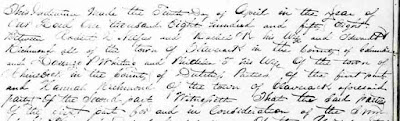 This Indenture Made the First Day of April in the year of
Our Lord One thousand Eight hundred and fifty Eight
Between Robert N. and his Wife and
Richmond all of the town of Claverack in the County of Columbia
and George P Whiting and his Wife of the town of
in the County of Dutchess Parties of the first part
and Hannah Richmond of the town of Claverack aforesaid
party of the Second part Witnesseth That the said parties
of the first part for and in Consideration of the Sum